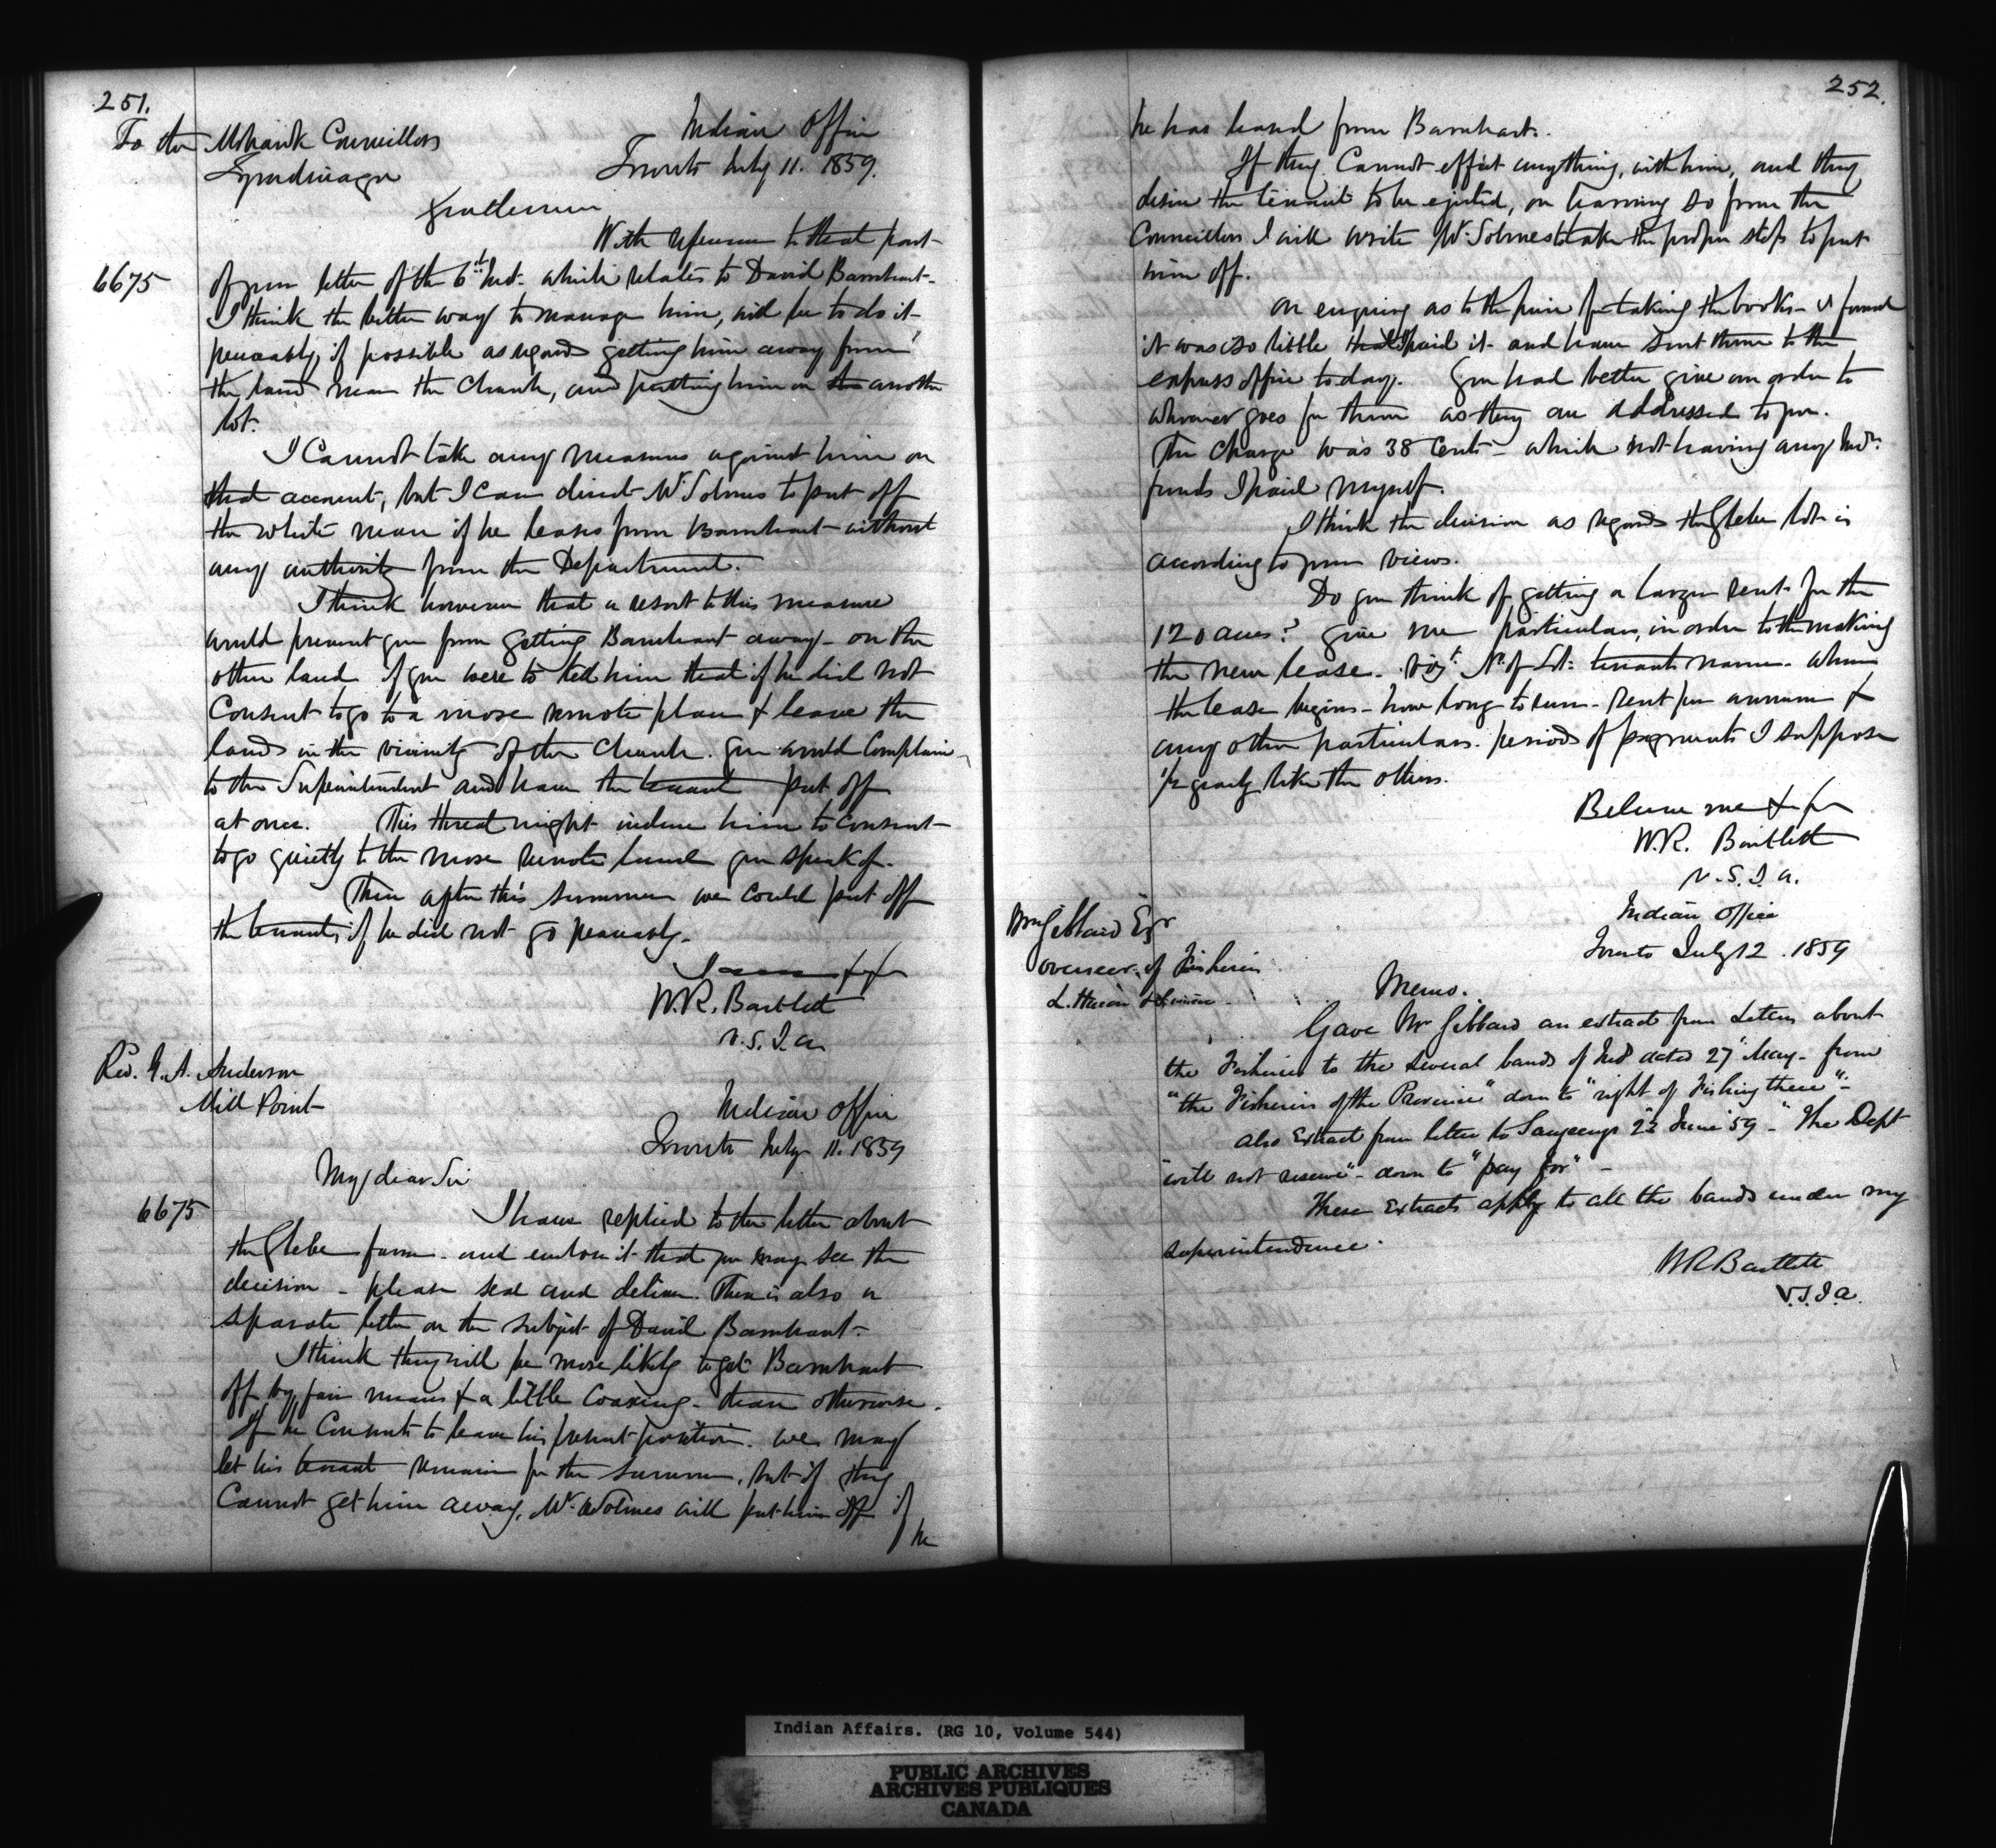 251.
To the Mohawk Councillors
Indian Office
Tyendinaga
Toronto July 11. 1859.
Gentlemen
With reference to that part
6675
of your letter of the 6th Inst. which relates to David Barnhart-
I think the better way to manage him, will be to do it
peaceably, if possible as regards getting him away from
the land near the Church, and putting him on the another
lot.
I Cannot take any measures against him on
that account, but I can direct Mr Solmes to put off
the white man if he leases from Barnhart - without
any authority from the Department.
I think however that a resort to this measure
would prevent you from getting Barnhart away - on the
other hand if you were to tell him that if he did not
Consent to go to a more remote place & leave the
lands in the vicinity of the Church. you would Complain
to the Superintendent and have the tenant put off
at once. This threat might induce him to consent
to go quietly to the more remote land you speak of.
Then after this summer we could put off
the tenants if he did not go peaceably.
I am &c &c
W.R. Bartlett
V.S.I.a.
Rev. G. A. Anderson
Mill Point
Indian Office
Toronto July 11. 1859
My dear Sir
6675
I have replied to the letter about
the Glebe farm - and enclose it that you may see the
decision - please seal and deliver. There is also a
separate letter on the subject of David Barnhart.
I think they will be more likely to get Barnhart
off by fair means & a little coaxing - than otherwise.
If he Consents to leave his present position. we may
let his tenant remain for the summer, but if they
Cannot get him away, Mr Solmes will put him off if
he
252.
he has leased from Barnhart.
If they Cannot effect anything, with him, and they
desire the tenant to be ejected, on learning so from the
Councillors I will write Mr Solmes to take the proper steps to put
him off.
On enquiring as to the price for taking the books - I found
it was so little that I paid it - and have sent them to the
express office today. You had better give an order to
whoever goes for them as they are addressed to you.
The charge was 38 Cents - which not having any Indn
funds I paid myself.
I think the decision as regards the Glebe lot is
according to your views.
Do you think of getting a larger rent for the
120 acres? give me particulars, in order to the making
the new lease. vizt No of Lot. tenants name. when
the lease begins - how long to run - rent per annum &
any other particulars. periods of payments I suppose
1/2 yearly like the others.
Believe me & for
W.R. Bartlett
V.S.I.a.
Wm Gibbard Esqr
Overseer of Fisheries
L. Huron & Superior
Indian Office
Toronto July 12. 1859
Memo.
Gave Mr Gibbard an extract from Letters about
the Fisheries to the several bands of Inds dated 27" May - from
"the Fisheries of the Province" down to "right of Fishing there"-
also Extract from letter to Saugeengs 23 June 59 - "The Dept
"will not reserve" - down to "pay for" -
These Extracts apply to all the bands under my
superintendence.
WR Bartlett
V.S.I.a.
Indian Affairs. (RG 10, Volume 544)
PUBLIC ARCHIVES
ARCHIVES PUBLIQUES
CANADA